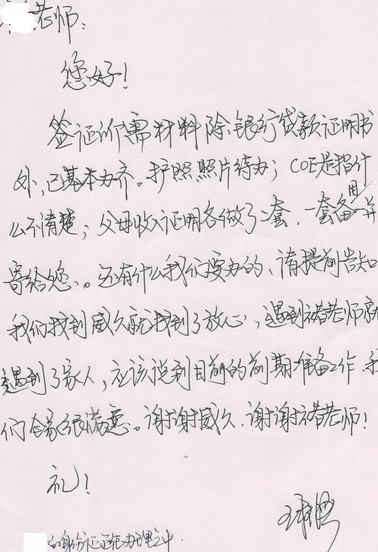 老师:
您好!
签证所需材料除银行贷款证明书
外,已基本办齐。护照照片待办;COE是指什
么不清楚;父母收入证明各做了二套,一套备用一并
寄给您、。还有什么我们要办的、请提前告知
我们找到威久就找到了放心,遇到褚老师就
遇到了家人,应该说到目前的前期准备工作,我
们全家很满意。谢谢威久、谢谢褚老师!
礼!
身份证正在办理之中